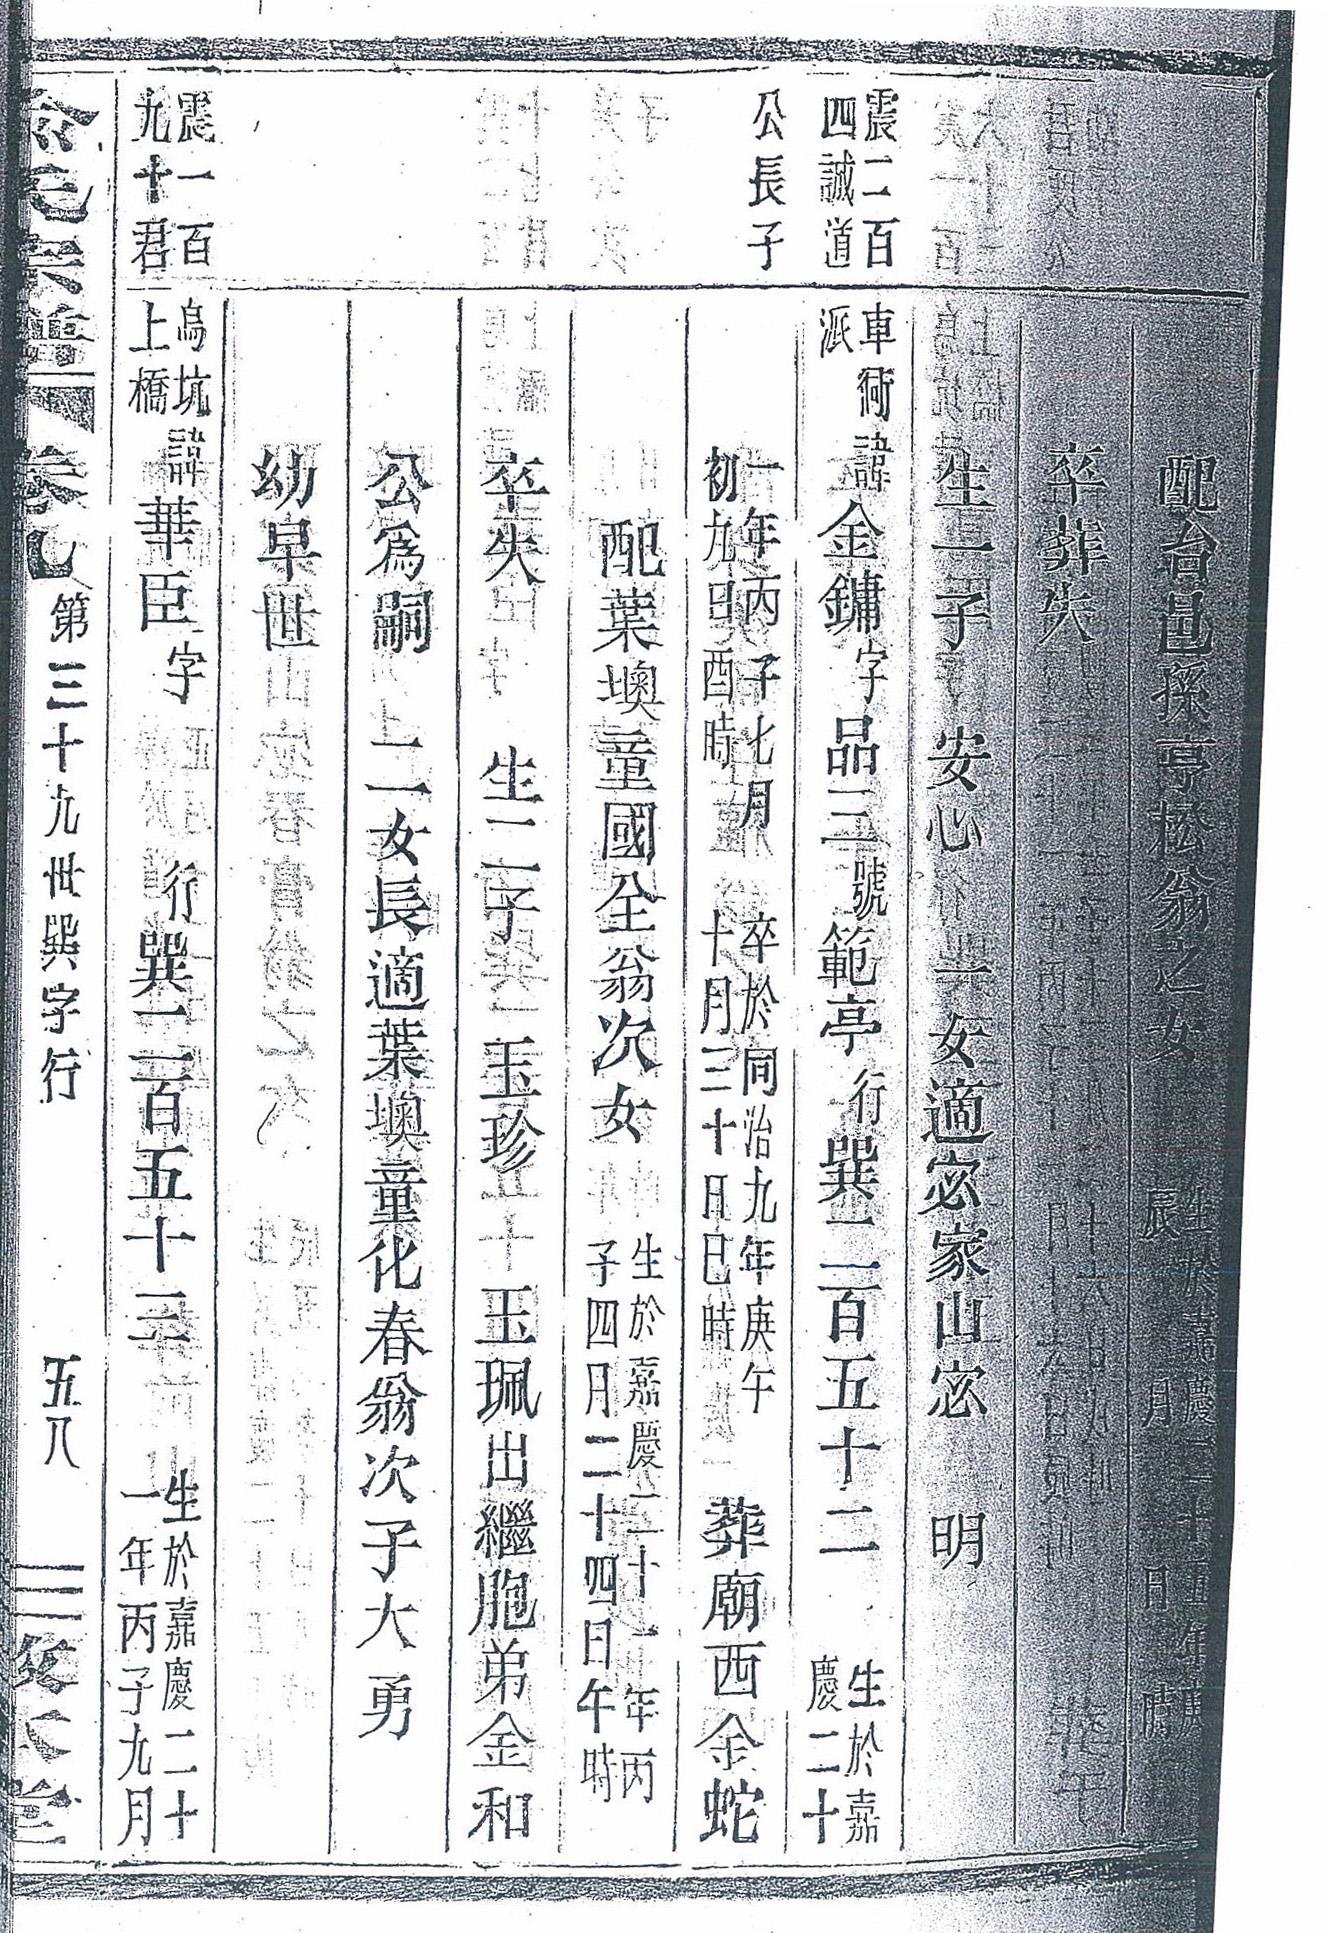 配台邑孫亭松翁之女 生於嘉慶二十五年庚
辰 月 日 時
卒葬失
生一子 安心 一女適宓家山宓 明
震二百
四誠道
車衕
派
諱金鏞字品三號範亭 行巽一二百五十二 生於嘉
慶二十
公長子
一年丙子七月 卒於同治九年庚午
初九日酉時 十月三十日巳時 葬廟西金蛇
配葉墺童國全翁次女 生於嘉慶二十一年丙
子四月二十四日午時
卒失 生二子 玉珍 玉珮出繼胞弟金和
公為嗣 二女長適葉墺童化春翁次子大勇
幼早世
震一百
九十君
烏坑
上橋
諱華臣字 行巽一二百五十三 生於嘉慶二十
一年丙子九月
俞氏宗譜 卷九 第三十九世巽字行 五八